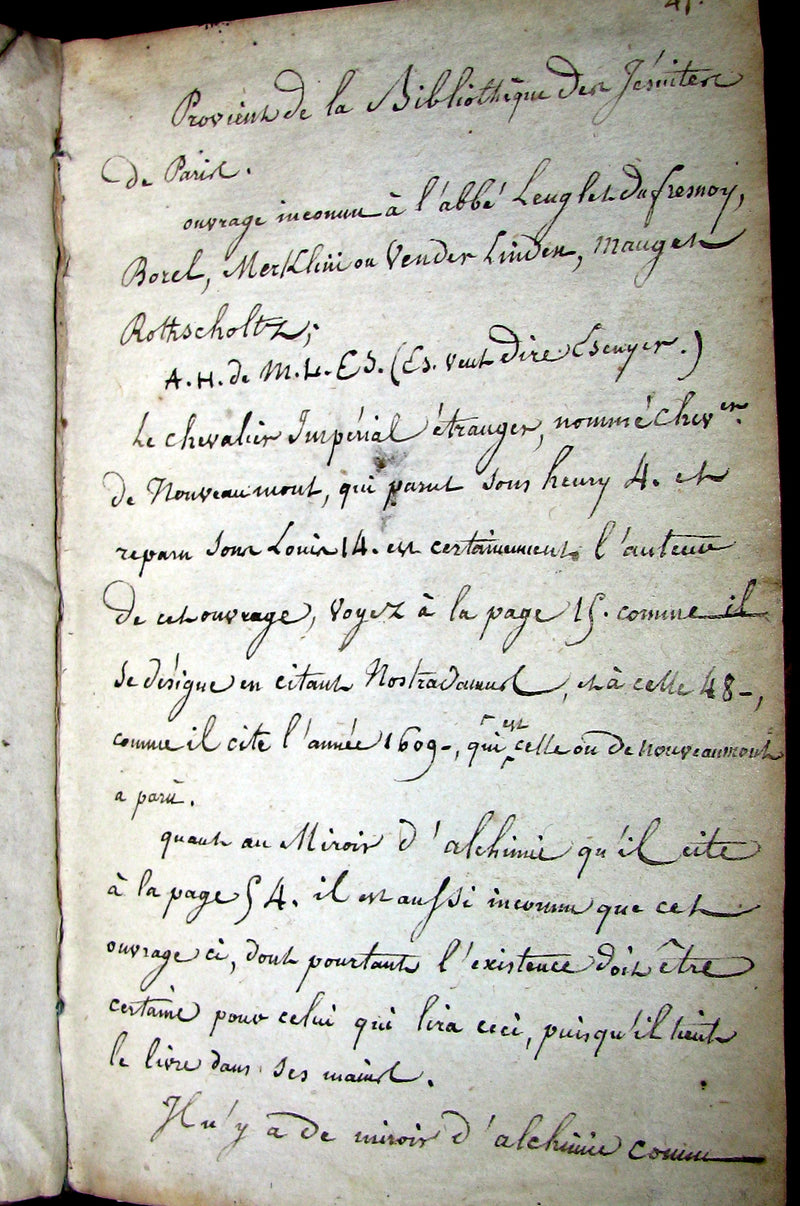 41.
Provient de la Bibliothèque des Jésuites
de Paris.
ouvrage inconnu à l'abbé Lenglet Dufresnoy,
Borel, Merklini ou Vender Linden, Manget
Rothscholtz;
A. H. de M. L. ES. (Es. veut dire Escuyer.)
Le chevalier Impérial étranger, nommé Chev.er
de Nouveaumont, qui parut sous henry 4. et
reparu sous Louis 14. est certainement l'auteur
de cet ouvrage, voyez à la page 15. comme il
se désigne en citant Nostradamus, et à celle 48-,
comme il cite l'année 1609-, qui est celle où de nouveaumont
a paru.
quant au Miroir d'alchimie qu'il cite
à la page 54. il est aussi inconnu que cet
ouvrage ci, dont pourtant l'existence doit être
certaine pour celui qui lira ceci, puisqu'il tient
le livre dans ses mains.
Il n'y a de miroir d'alchimie connu